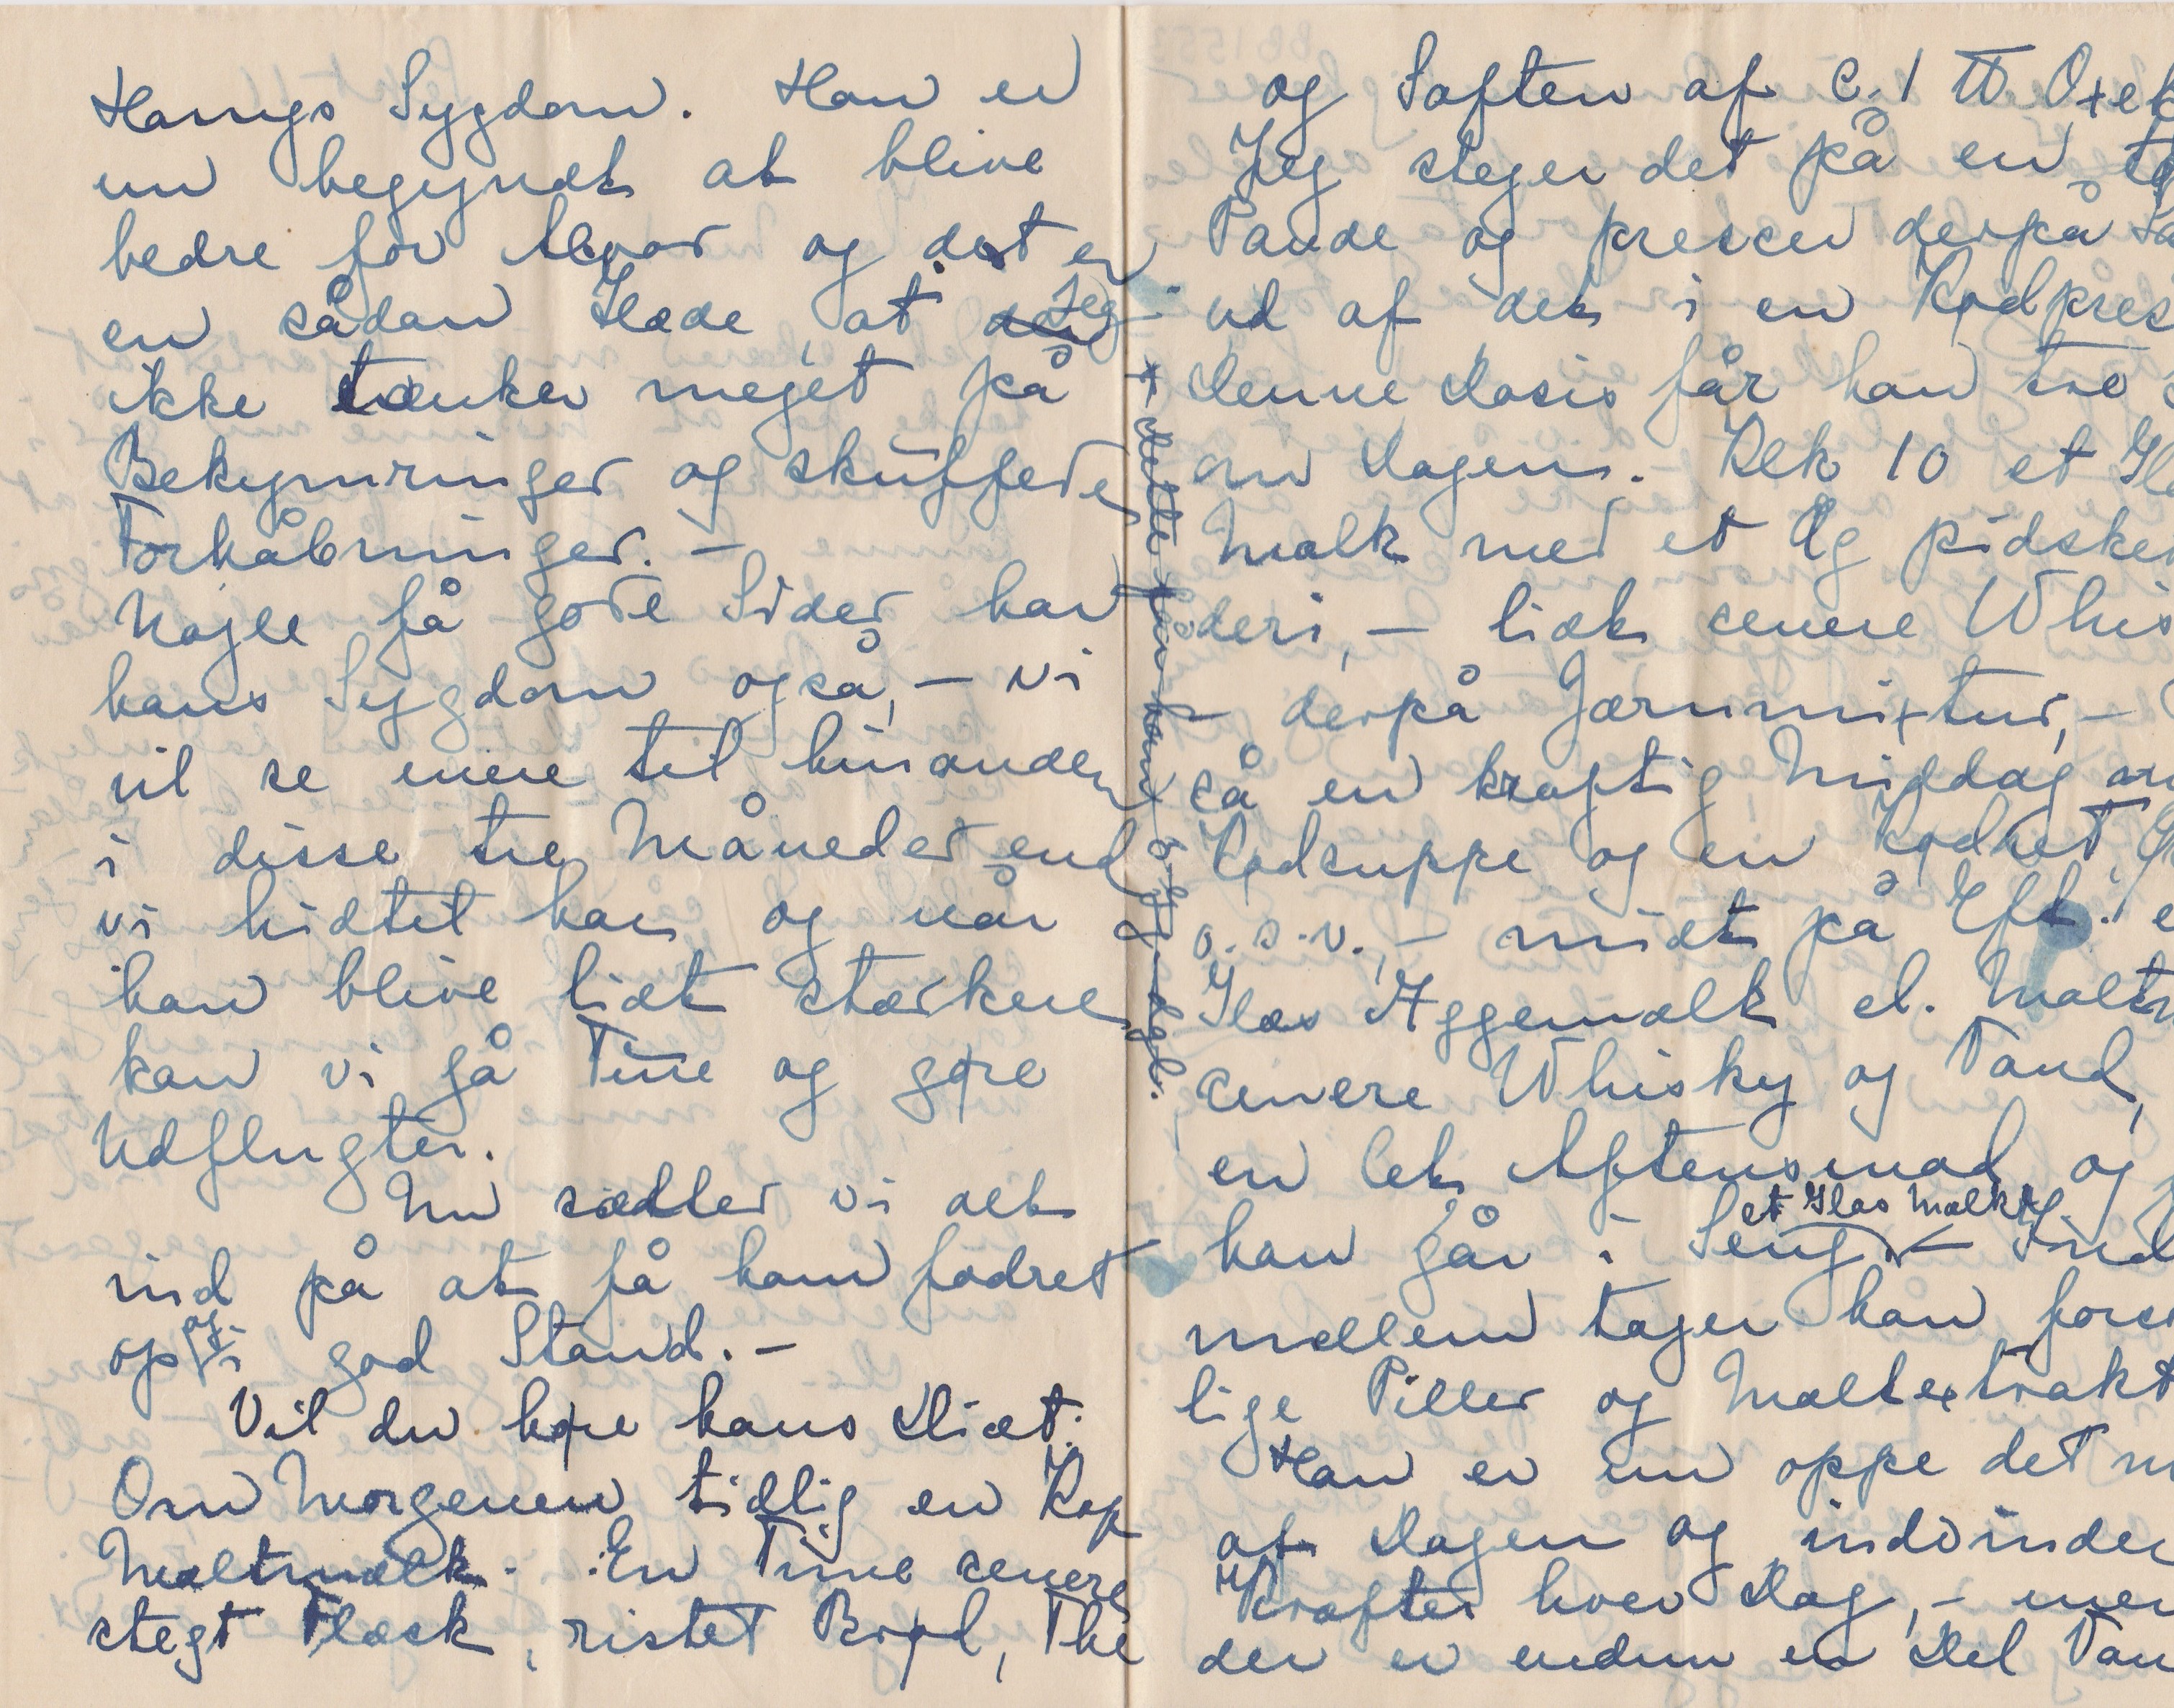 Harrys Sygdom. Han er
nu begyndt at blive
bedre for Alvor og det er
en sådan Glæde, at jeg
ikke tænker meget på
Bekymringer og skuffede
Forhåbninger. –
Nogle få gode Sider har
hans Sygdom også, – vi
vil se mere til hinanden
i disse tre Måneder end
vi hidtil har og når
han blive lidt stærkere
kan vi gå Ture og gøre
Udflugter.
Nu sætter vi alt
ind på at få ham fodret
op og i god Stand. –
Vil du høre hans Diæt:
Om Morgenen tidlig en Kop
Maltmælk. En Time senere
stegt Flæsk, ristet Brød, The
* dette får han 3 Gg. dgl.
og Saften af c. 1 ℔ Oxek
Jeg steger det på en
Pande og presser derpå Sa
ud af det i en Kødpres
Denne Dosis får han tre
om Dagen. Klk 10 et Gla
Mælk med et Æg pidsket
deri, – lidt senere Whis
– derpå Jærnmixtur, –
så en kraftig Middag m
Kødsuppe og en Kødret, G
o.s.v., – midt på Eft. e
Glas Æggemælk el. Maltm
senere Whisky og Vand,
en let Aftensmad og f
et Glas Mælk
han går i Seng. – Ind
mellem tager han forsk
lige Piller og Maltextrakt
Han er nu oppe det m
af Dagen og indvinder
Kræfter hver Dag, – men
der er endnu en Del Van